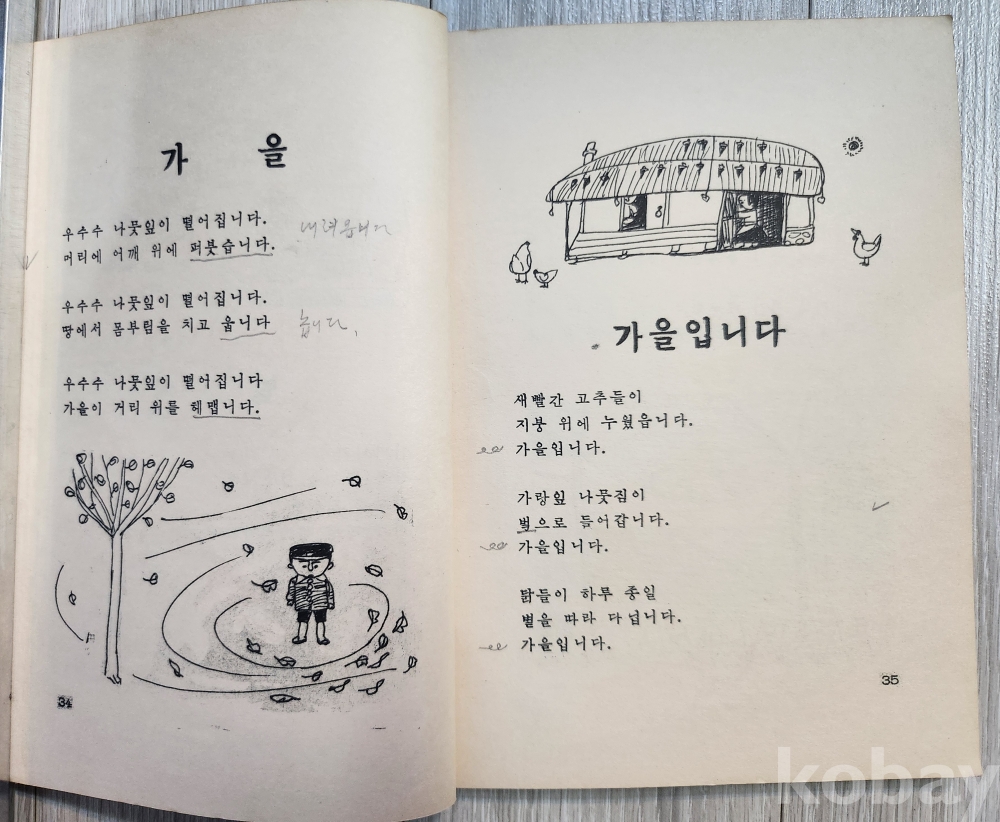 가 을
우수수 나뭇잎이 떨어집니다.
머리에 어깨 위에 퍼붓습니다.
내려옵니다
우수수 나뭇잎이 떨어집니다.
땅에서 몸부림을 치고 웁니다
우수수 나뭇잎이 떨어집니다
가을이 거리 위를 헤맵니다.
34
가을입니다
새빨간 고추들이
지붕 위에 누웠읍니다.
가을입니다.
가랑잎 나뭇짐이
벜으로 들어갑니다.
가을입니다.
닭들이 하루 종일
볕을 따라 다닙니다.
가을입니다.
35
kobay